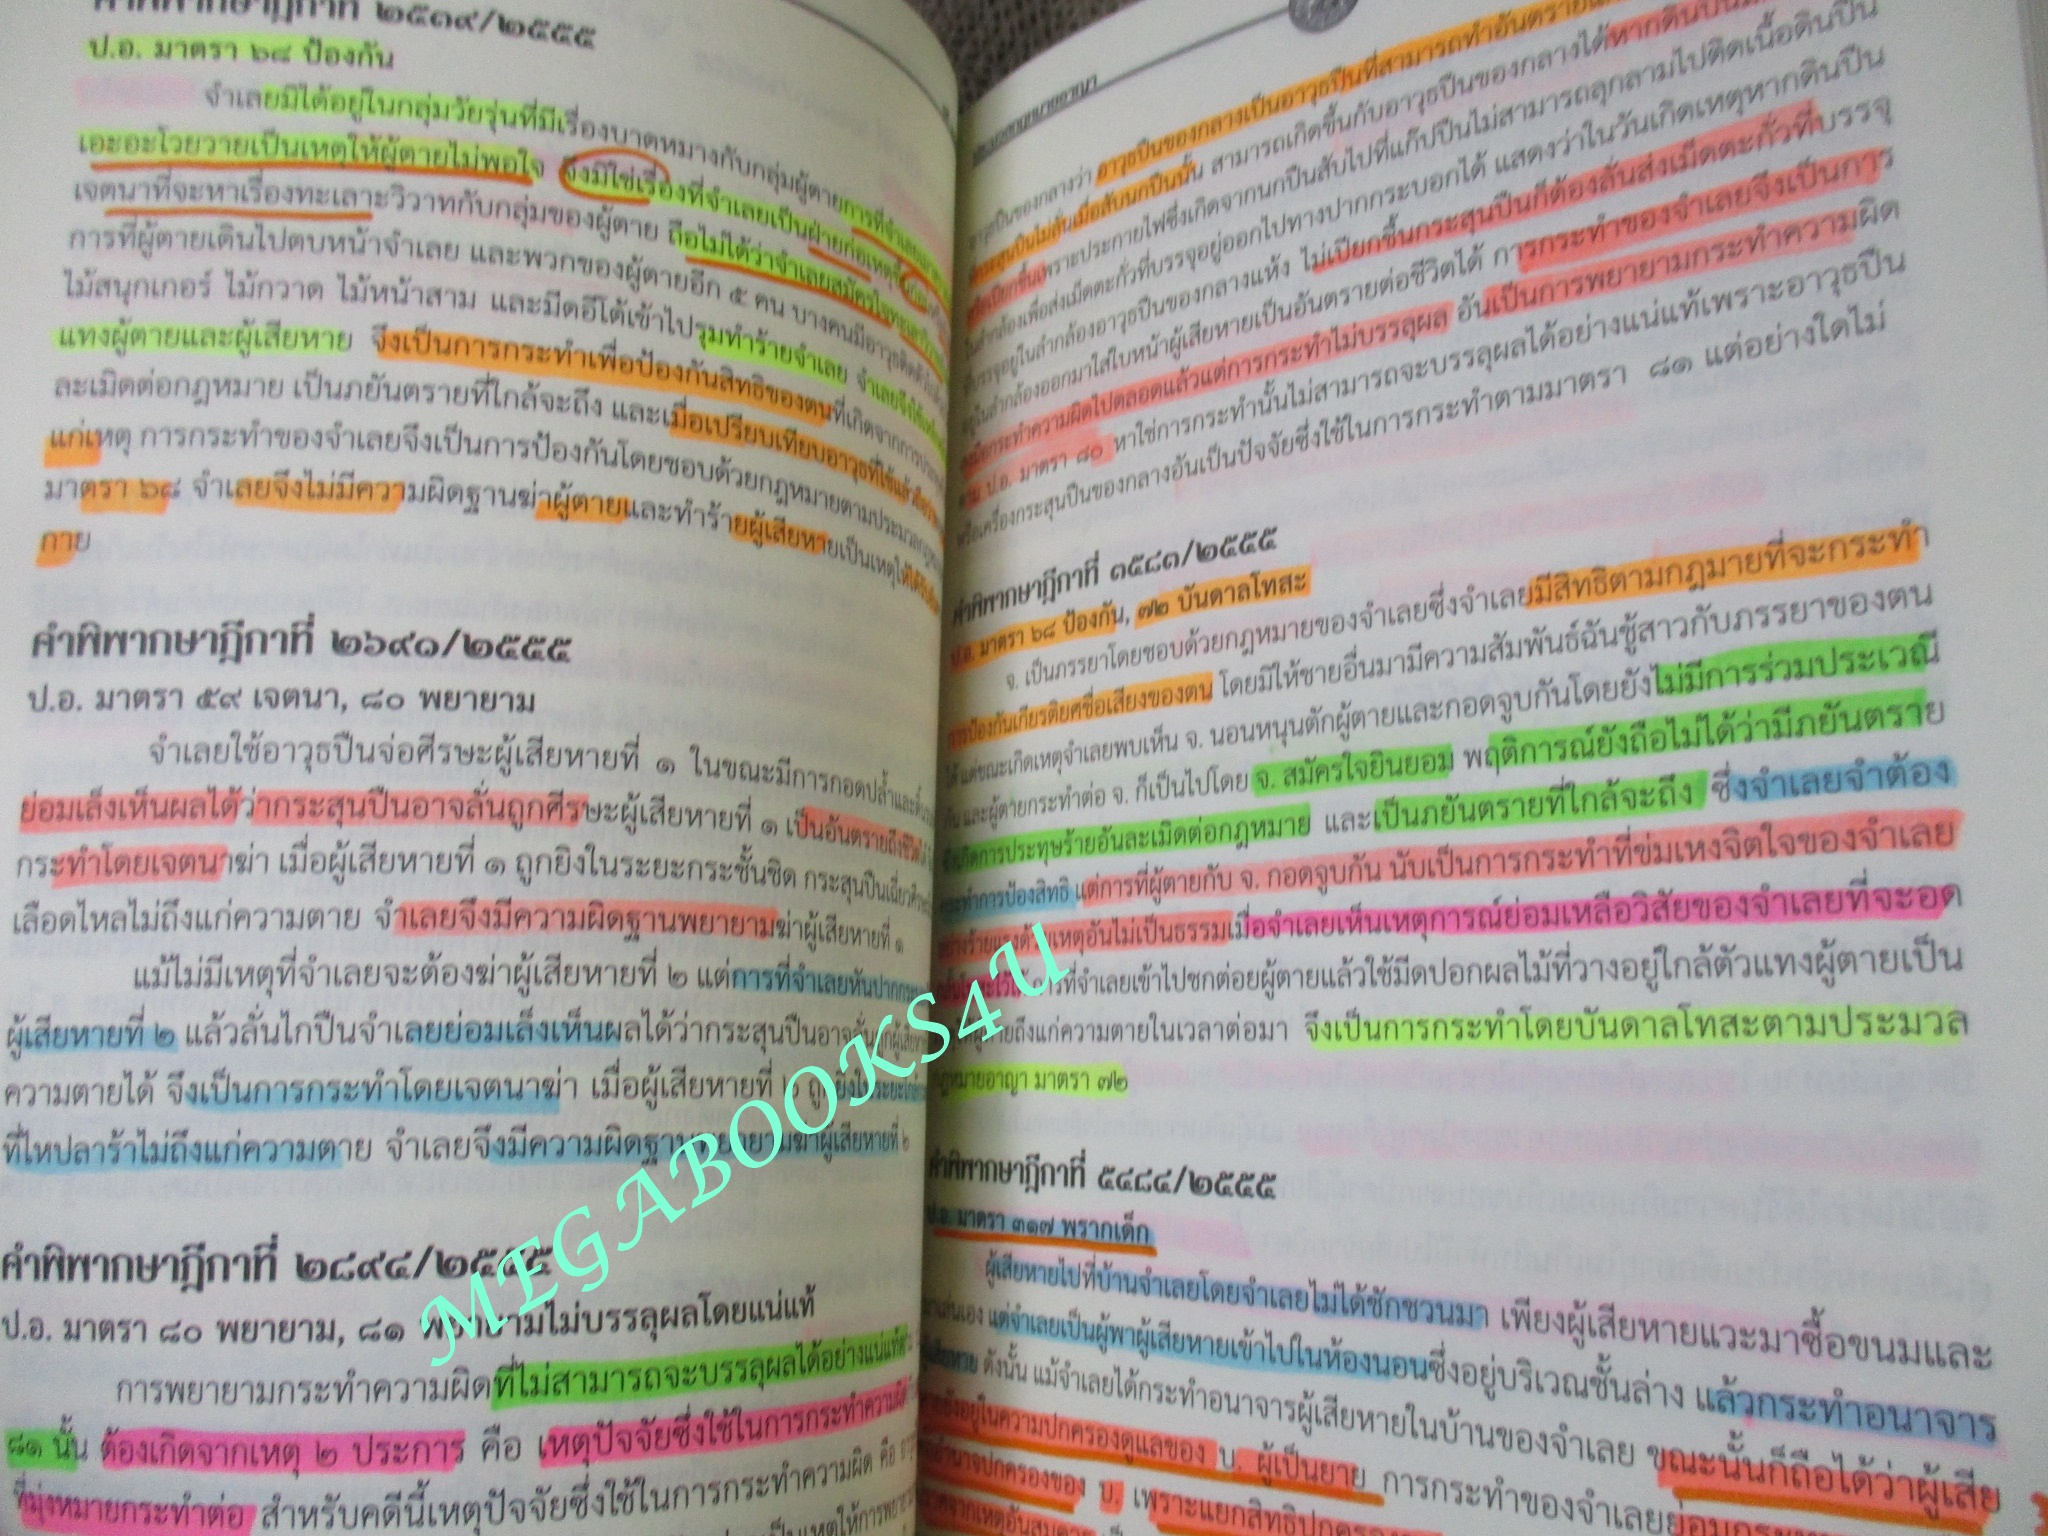 คำพิพากษาฎีกาที่ ๒๕๑๙/๒๕๕๕
ป.อ. มาตรา ๖๘ ป้องกัน
จำเลยมิได้อยู่ในกลุ่มวัยรุ่นที่มีเรื่องบาดหมางกับกลุ่มผู้ตาย
เอะอะโวยวายเป็นเหตุให้ผู้ตายไม่พอใจ จึงมิใช่เรื่องที่จำเลยเป็นฝ่ายก่อเหตุ
เจตนาที่จะหาเรื่องทะเลาะวิวาทกับกลุ่มของผู้ตาย ถือไม่ได้ว่าจำเลยสมัครใจ
การที่ผู้ตายเดินไปตบหน้าจำเลย และพวกของผู้ตายอีก ๕ คน บางคนมีอาวุธ
ไม้สนุกเกอร์ ไม้กวาด ไม้หน้าสาม และมีดอีโต้เข้าไปรุมทำร้ายจำเลย
แทงผู้ตายและผู้เสียหาย จึงเป็นการกระทำเพื่อป้องกันสิทธิของตนที่เกิดจาก
ละเมิดต่อกฎหมาย เป็นภยันตรายที่ใกล้จะถึง และเมื่อเปรียบเทียบอาวุธที่ใช้แล้ว
แก่เหตุ การกระทำของจำเลยจึงเป็นการป้องกันโดยชอบด้วยกฎหมายตาม
มาตรา ๖๘ จำเลยจึงไม่มีความผิดฐานฆ่าผู้ตายและทำร้ายผู้เสียหายเป็นเหตุให้
กาย
คำพิพากษาฎีกาที่ ๒๖๙๑/๒๕๕๕
ป.อ. มาตรา ๕๙ เจตนา, ๘๐ พยายาม
จำเลยใช้อาวุธปืนจ่อศีรษะผู้เสียหายที่ ๑ ในขณะมีการกอดปล้ำ
ย่อมเล็งเห็นผลได้ว่ากระสุนปืนอาจลั่นถูกศีรษะผู้เสียหายที่ ๑ เป็นอันตรายถึงชีวิต
กระทำโดยเจตนาฆ่า เมื่อผู้เสียหายที่ ๑ ถูกยิงในระยะกระชั้นชิด กระสุนปืนเฉี่ยว
เลือดไหลไม่ถึงแก่ความตาย จำเลยจึงมีความผิดฐานพยายามฆ่าผู้เสียหายที่ ๑
แม้ไม่มีเหตุที่จำเลยจะต้องฆ่าผู้เสียหายที่ ๒ แต่การที่จำเลยหันปาก
ผู้เสียหายที่ ๒ แล้วลั่นไกปืนจำเลยย่อมเล็งเห็นผลได้ว่ากระสุนปืนอาจลั่น
ความตายได้ จึงเป็นการกระทำโดยเจตนาฆ่า เมื่อผู้เสียหายที่ ๒ ถูกยิง
ที่ไหปลาร้าไม่ถึงแก่ความตาย จำเลยจึงมีความผิดฐานพยายามฆ่าผู้เสียหายที่ ๒
คำพิพากษาฎีกาที่ ๒๘๙๔/๒๕๕๕
ป.อ. มาตรา ๘๐ พยายาม, ๘๑ พยายามไม่บรรลุผลโดยแน่แท้
การพยายามกระทำความผิดที่ไม่สามารถจะบรรลุผลได้อย่างแน่แท้
๘๑ นั้น ต้องเกิดจากเหตุ ๒ ประการ คือ เหตุปัจจัยซึ่งใช้ในการกระทำความผิด
ที่มุ่งหมายกระทำต่อ สำหรับคดีนี้เหตุปัจจัยซึ่งใช้ในการกระทำความผิด คือ
เป็นเหตุให้การพยายาม
MEGABOOKS4U
ปืนของกลางว่า อาวุธปืนของกลางเป็นอาวุธปืนที่สามารถทำอันตราย
กระสุนปืนไม่ลั่นเมื่อสับนกปืนนั้น สามารถเกิดขึ้นกับอาวุธปืนของกลางได้หากดินปืน
เปียกชื้นเพราะประกายไฟซึ่งเกิดจากนกปืนสับไปที่แก๊ปปืนไม่สามารถลุกลามไปติดเนื้อดินปืน
ในลำกล้องเพื่อส่งเม็ดตะกั่วที่บรรจุอยู่ออกไปทางปากกระบอกได้ แสดงว่าในวันเกิดเหตุหากดินปืน
ที่บรรจุอยู่ในลำกล้องอาวุธปืนของกลางแห้ง ไม่เปียกชื้นกระสุนปืนก็ต้องลั่นส่งเม็ดตะกั่วที่บรรจุ
อยู่ในลำกล้องออกมาใส่ใบหน้าผู้เสียหายเป็นอันตรายต่อชีวิตได้ การกระทำของจำเลยจึงเป็นการ
ลงมือกระทำความผิดไปตลอดแล้วแต่การกระทำไม่บรรลุผล อันเป็นการพยายามกระทำความผิด
ตาม ป.อ. มาตรา ๘๐ หาใช่การกระทำนั้นไม่สามารถจะบรรลุผลได้อย่างแน่แท้เพราะอาวุธปืน
หรือเครื่องกระสุนปืนของกลางอันเป็นปัจจัยซึ่งใช้ในการกระทำตามมาตรา ๘๑ แต่อย่างใดไม่
คำพิพากษาฎีกาที่ ๓๕๘๓/๒๕๕๕
ป.อ. มาตรา ๖๘ ป้องกัน, ๗๒ บันดาลโทสะ
จ. เป็นภรรยาโดยชอบด้วยกฎหมายของจำเลยซึ่งจำเลยมีสิทธิตามกฎมายที่จะกระทำ
การป้องกันเกียรติยศชื่อเสียงของตน โดยมิให้ชายอื่นมามีความสัมพันธ์ฉันชู้สาวกับภรรยาของตน
ได้ แต่ขณะเกิดเหตุจำเลยพบเห็น จ. นอนหนุนตักผู้ตายและกอดจูบกันโดยยังไม่มีการร่วมประเวณี
กัน และผู้ตายกระทำต่อ จ. ก็เป็นไปโดย จ. สมัครใจยินยอม พฤติการณ์ยังถือไม่ได้ว่ามีภยันตราย
ซึ่งเกิดการประทุษร้ายอันละเมิดต่อกฎหมาย และเป็นภยันตรายที่ใกล้จะถึง ซึ่งจำเลยจำต้อง
กระทำการป้องสิทธิ แต่การที่ผู้ตายกับ จ. กอดจูบกัน นับเป็นการกระทำที่ข่มเหงจิตใจของจำเลย
อย่างร้ายแรงด้วยเหตุอันไม่เป็นธรรมเมื่อจำเลยเห็นเหตุการณ์ย่อมเหลือวิสัยของจำเลยที่จะอด
กลั้นโทสะไว้ได้ การที่จำเลยเข้าไปชกต่อยผู้ตายแล้วใช้มีดปอกผลไม้ที่วางอยู่ใกล้ตัวแทงผู้ตายเป็น
ผู้ตายถึงแก่ความตายในเวลาต่อมา จึงเป็นการกระทำโดยบันดาลโทสะตามประมวล
กฎหมายอาญา มาตรา ๗๒
คำพิพากษาฎีกาที่ ๕๔๘๔/๒๕๕๕
ป.อ. มาตรา ๓๑๗ พรากเด็ก
ผู้เสียหายไปที่บ้านจำเลยโดยจำเลยไม่ได้ชักชวนมา เพียงผู้เสียหายแวะมาซื้อขนมและ
มาเล่นเอง แต่จำเลยเป็นผู้พาผู้เสียหายเข้าไปในห้องนอนซึ่งอยู่บริเวณชั้นล่าง แล้วกระทำอนาจาร
ผู้เสียหาย ดังนั้น แม้จำเลยได้กระทำอนาจารผู้เสียหายในบ้านของจำเลย ขณะนั้นก็ถือได้ว่าผู้เสีย
ยังอยู่ในความปกครองดูแลของ บ. ผู้เป็นยาย การกระทำของจำเลยย่อม
อำนาจปกครองของ บ. เพราะแยกสิทธิปกครอง